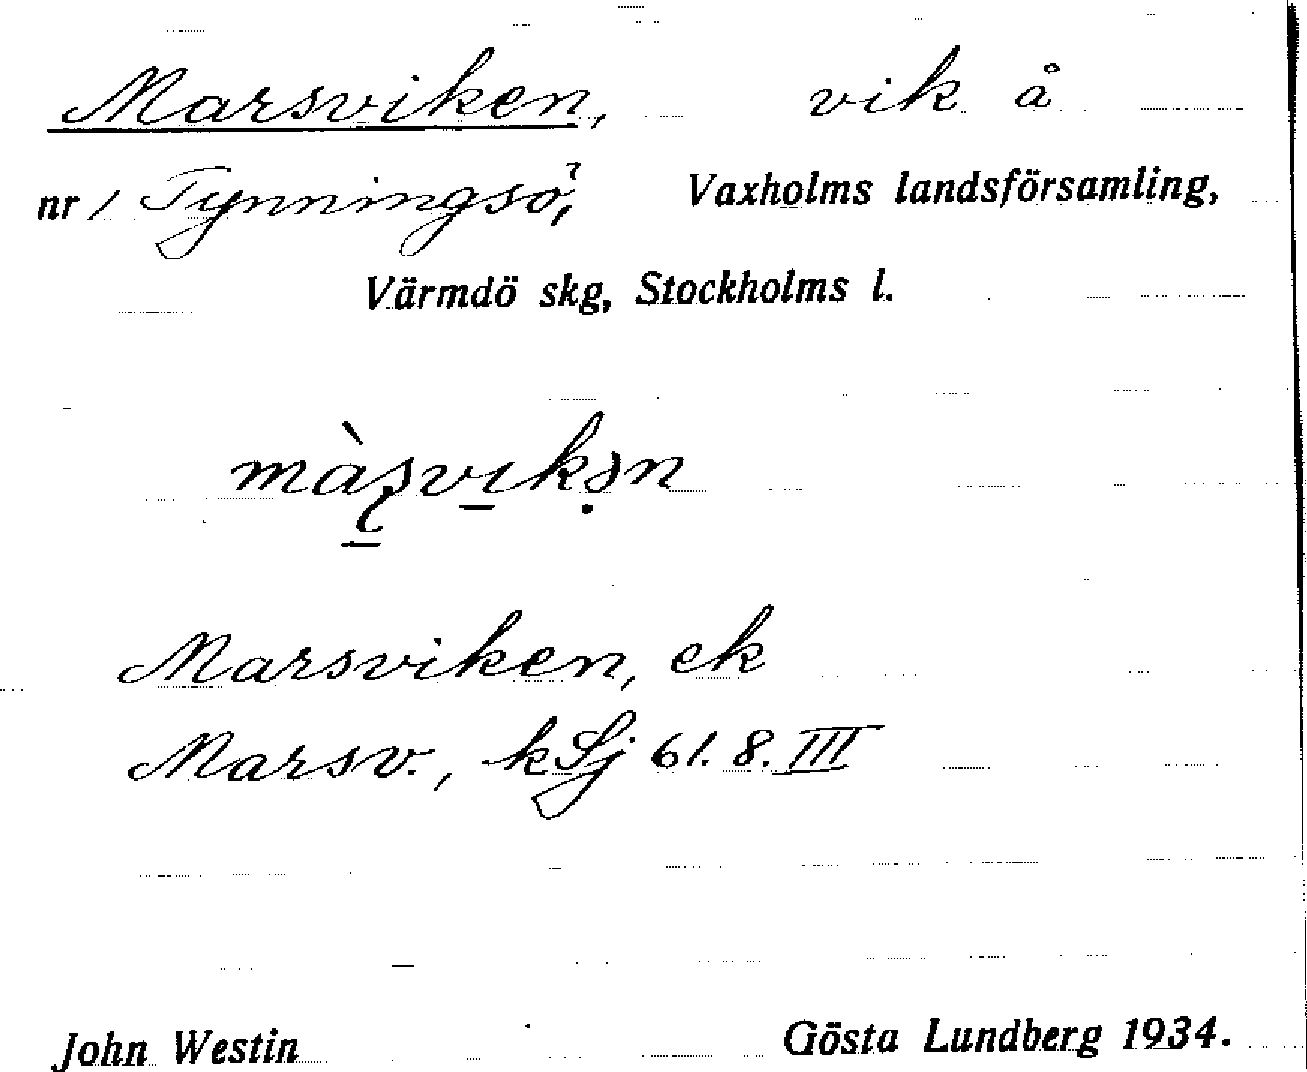 Marsviken, vik å
nr 1 Tynningsö, Vaxholms landsförsamling,
Värmdö skg, Stockholms l.
màʂvıkən
Marsviken, ek
Marsv., kSj 61. 8. III
John Westin Gösta Lundberg 1934.